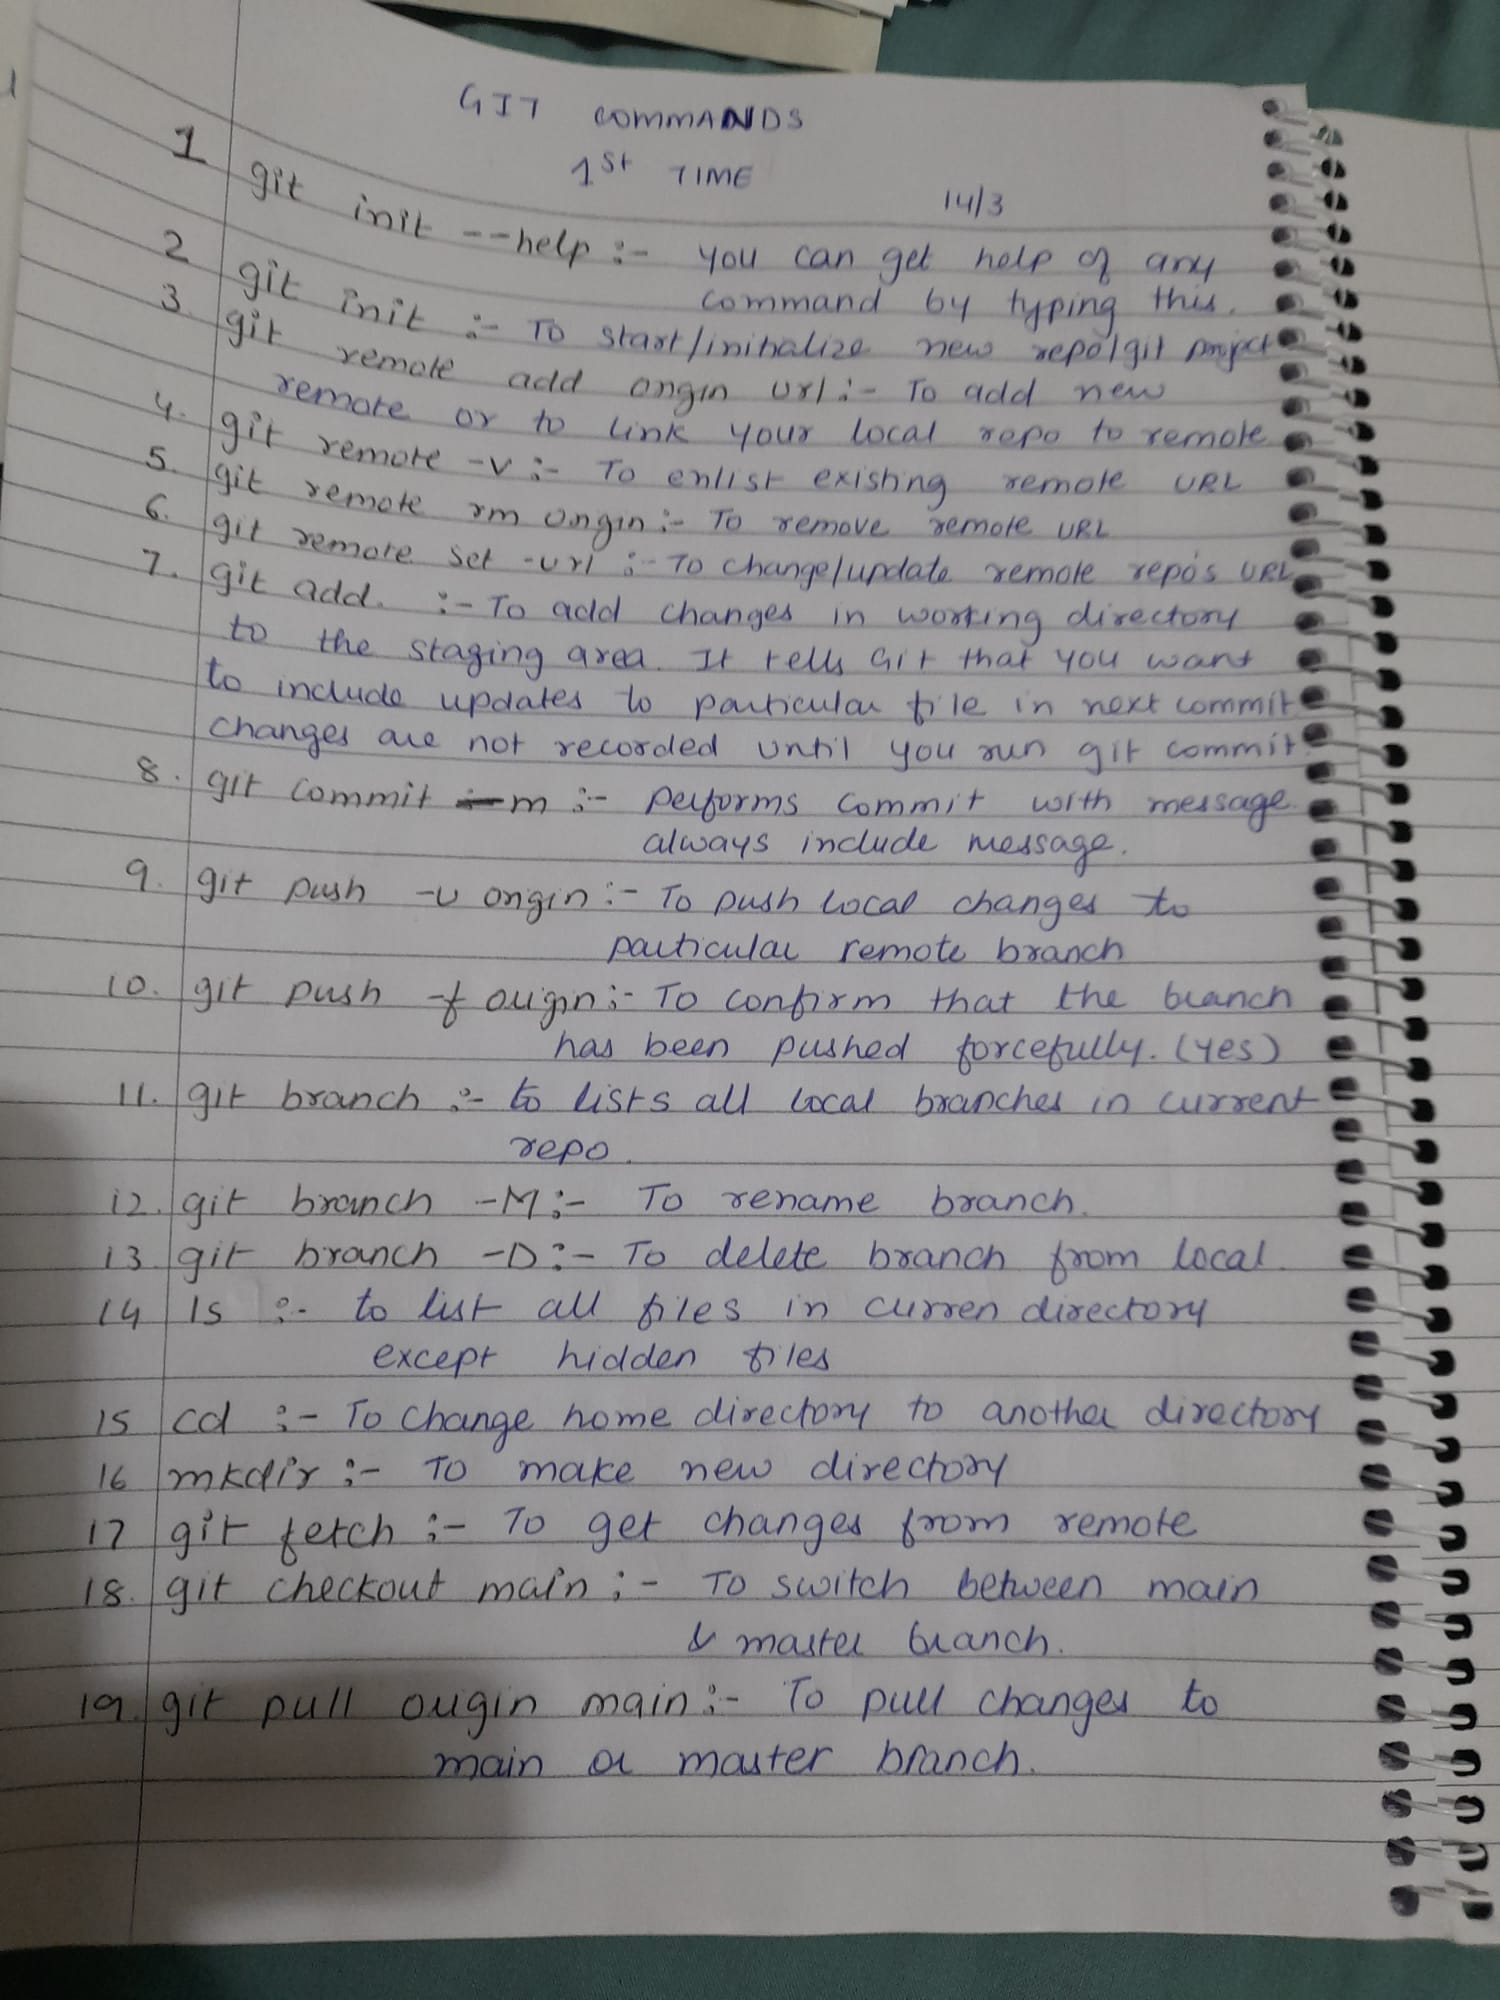 GIT COMMANDS
1st TIME
14/3
1 git init --help :- you can get help of any
command by typing this.
2 git init :- To start/initialize new repo/git project
3. git remote add origin url :- To add new
remote or to link your local repo to remote
4. git remote -v :- To enlist existing remote URL
5. git remote rm origin :- To remove remote URL
6. git remote set -url :- To change/update remote repo's URL
7. git add. :- To add changes in working directory
to the staging area. It tells Git that you want
to include updates to particular file in next commit
changes are not recorded until you run git commit.
8. git commit -m :- performs commit with message
always include message.
9. git push -u origin :- To push local changes to
particular remote branch
10. git push -f origin :- To confirm that the branch
has been pushed forcefully. (yes)
11. git branch :- to lists all local branches in current
repo.
12. git branch -M :- To rename branch.
13. git branch -D :- To delete branch from local.
14 ls :- to list all files in curren directory
except hidden files
15 cd :- To change home directory to another directory
16 mkdir :- To make new directory
17 git fetch :- To get changes from remote
18. git checkout main :- To switch between main
& master branch.
19. git pull origin main :- To pull changes to
main or master branch.